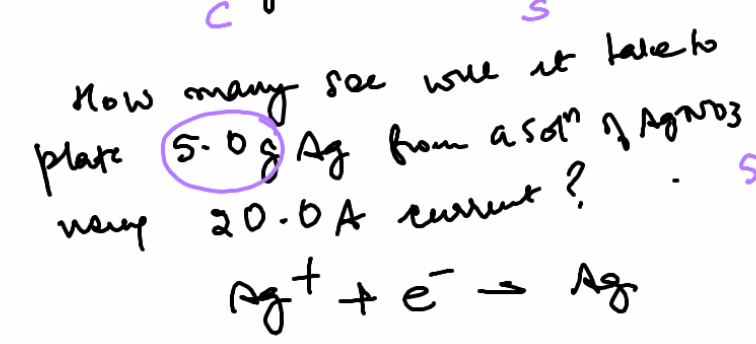 C S
How many sec will it take to
plate 5.0g Ag from a solⁿ of AgNO3
using 20.0A current?
S
Ag⁺ + e⁻ → Ag